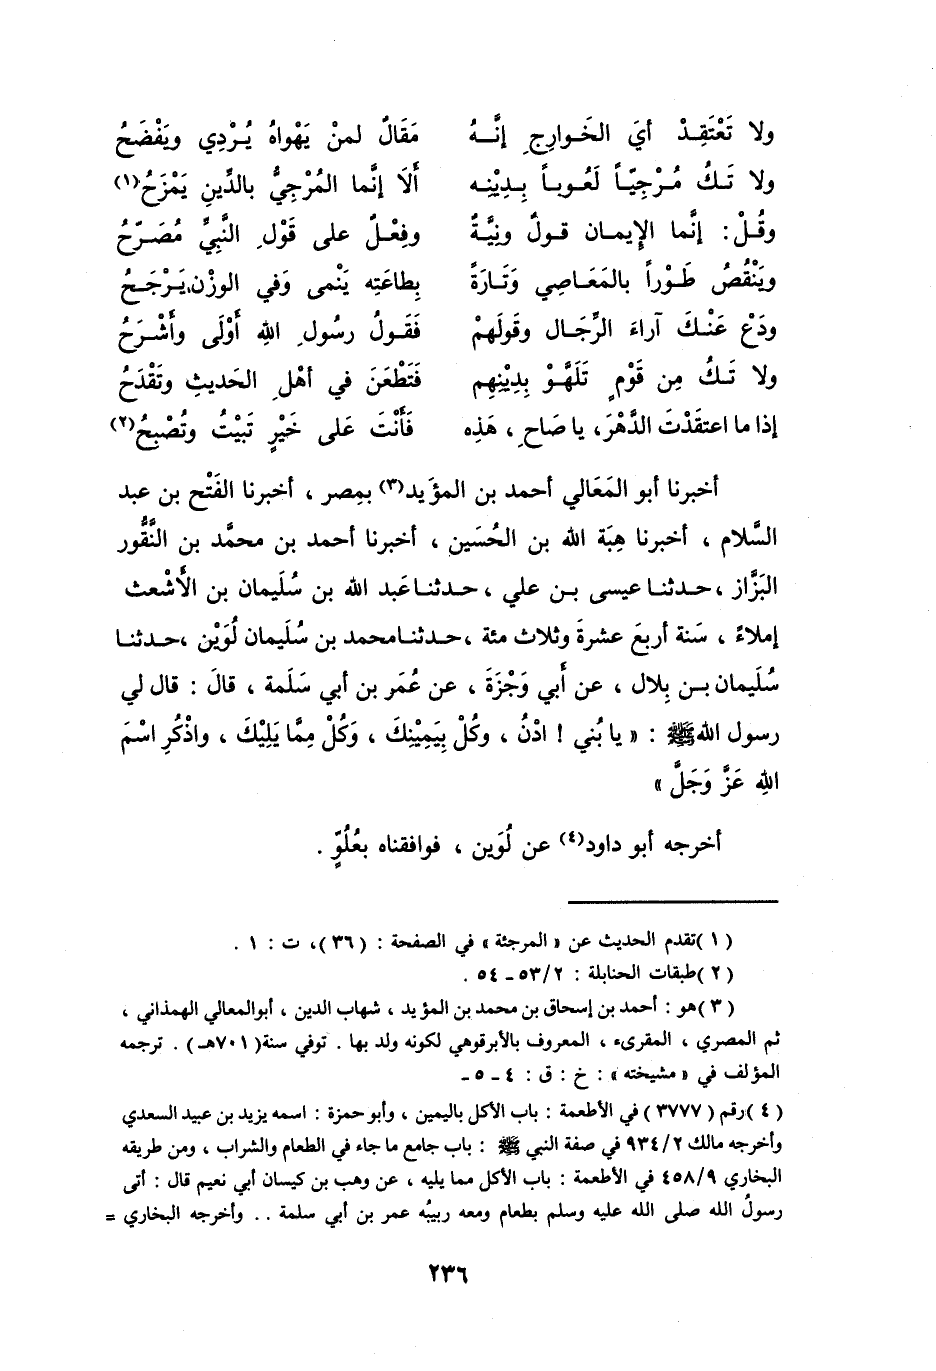 ولا تَعْتَقِدْ أيَ الخَوارِجِ إنَّهُ مَقَالٌ لمنْ يَهْواهُ يُرْدِي ويَفْضَحُ
ولا تَكُ مُرْجِيّاً لَعُوباً بِدِيْنِه أَلَا إنَّما المُرْجِيُّ بالدِّينِ يَمْزَحُ(١)
وقُلْ : إنَّما الإيمان قولٌ ونِيَّةٌ وفِعْلٌ على قَوْلِ النَّبِيِّ مُصَرّحُ
ويَنْقُصُ طَوْراً بالمَعَاصِي وَتَارَةً بِطاعَتِه يَنْمى وَفي الوزْنِ يَرْجَحُ
ودَعْ عَنْكَ آراءَ الرِّجَال وقَولَهمْ فَقَولُ رسُولِ اللهِ أَوْلَى وأَشْرَحُ
ولا تَكُ مِن قَوْمٍ تَلَهَّوْ بِدِيْنِهِم فَتَطْعَنَ في أهْلِ الحَديثِ وتَقْدَحُ
إذا ما اعتقَدْتَ الدَّهْرَ، يا صَاحِ ، هَذِه فَأَنْتَ عَلى خَيْرٍ تَبِيْتُ وتُصْبِحُ(٢)
أخبرنا أبو المَعَالي أحمد بن المؤيد(٣) بمِصر ، أخبرنا الفَتْح بن عبد
السَّلام ، أخبرنا هِبَة الله بن الحُسَين ، أخبرنا أحمد بن محمَّد بن النَّقُّور
البَزَّاز ، حدثنا عيسى بن علي ، حدثنا عَبد الله بن سُلَيمان بن الأَشْعث
إملاءً ، سَنة أربعَ عشرةَ وثلاث مئة ، حدثنا محمد بن سُلَيمان لُوَيْن ، حدثنا
سُلَيمان بن بِلال ، عن أَبي وَجْزَةَ ، عن عُمَر بن أبي سَلَمة ، قالَ : قال لي
رسول الله ﷺ : « يا بُني ! ادْنُ ، وكُلْ بِيَمِيْنِكَ ، وَكُلْ مِمَّا يَلِيْكَ ، واذْكُرِ اسْمَ
اللهِ عَزَّ وَجَلَّ »
أخرجه أبو داود(٤) عن لُوَين ، فوافقناه بعُلُوٍّ .
( ١ ) تقدم الحديث عن « المرجئة » في الصفحة : ( ٣٦ ) ، ت : ١ .
( ٢ ) طبقات الحنابلة : ٥٣/٢ ـ ٥٤ .
( ٣ ) هو : أحمد بن إسحاق بن محمد بن المؤيد ، شهاب الدين ، أبوالمعالي الهمذاني ،
ثم المصري ، المقرىء ، المعروف بالأبرقوهي لكونه ولد بها . توفي سنة ( ٧٠١هـ ) . ترجمه
المؤلف في « مشيخته » : خ : ق : ٤ ـ ٥ ـ
( ٤ ) رقم ( ٣٧٧٧ ) في الأطعمة : باب الأكل باليمين ، وأبو حمزة : اسمه يزيد بن عبيد السعدي
وأخرجه مالك ٩٣٤/٢ في صفة النبي ﷺ : باب جامع ما جاء في الطعام والشراب ، ومن طريقه
البخاري ٤٥٨/٩ في الأطعمة : باب الأكل مما يليه ، عن وهب بن كيسان أبي نعيم قال : أتى
رسولُ الله صلى الله عليه وسلم بطعام ومعه ربيبُه عمر بن أبي سلمة .. وأخرجه البخاري =
٢٣٦